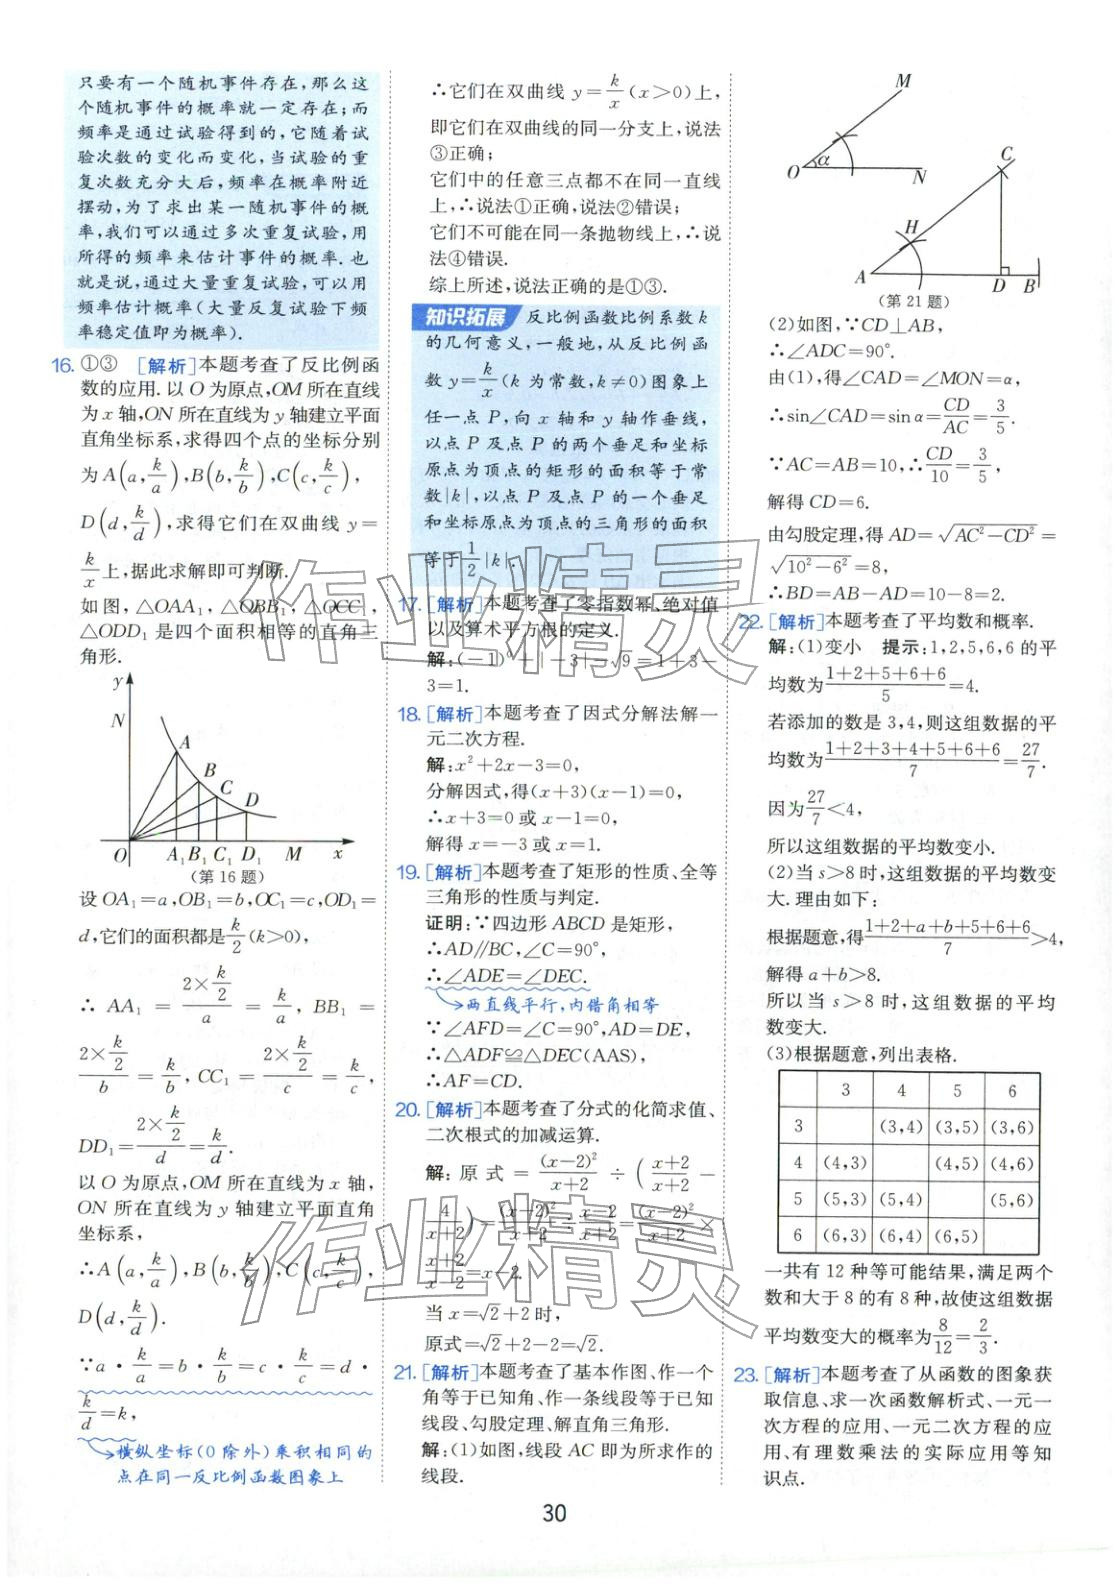 只要有一个随机事件存在,那么这
个随机事件的概率就一定存在;而
频率是通过试验得到的,它随着试
验次数的变化而变化,当试验的重
复次数充分大后,频率在概率附近
摆动,为了求出某一随机事件的概
率,我们可以通过多次重复试验,用
所得的频率来估计事件的概率.也
就是说,通过大量重复试验,可以用
频率估计概率(大量反复试验下频
率稳定值即为概率).
16. ①③ [解析]本题考查了反比例函
数的应用.以 O 为原点,OM 所在直线
为 x 轴,ON 所在直线为 y 轴建立平面
直角坐标系,求得四个点的坐标分别
为 A(a,k/a),B(b,k/b),C(c,k/c),
D(d,k/d),求得它们在双曲线 y=
k/x 上,据此求解即可判断.
如图,△OAA₁,△OBB₁,△OCC₁,
△ODD₁ 是四个面积相等的直角三
角形.
y
N
A
B
C
D
O A₁ B₁ C₁ D₁ M x
(第 16 题)
设 OA₁=a,OB₁=b,OC₁=c,OD₁=
d,它们的面积都是 k/2 (k>0),
∴ AA₁ = (2×k/2)/a = k/a, BB₁ =
(2×k/2)/b = k/b, CC₁ = (2×k/2)/c = k/c,
DD₁ = (2×k/2)/d = k/d.
以 O 为原点,OM 所在直线为 x 轴,
ON 所在直线为 y 轴建立平面直角
坐标系,
∴A(a,k/a),B(b,k/b),C(c,k/c),
D(d,k/d).
∵a·k/a=b·k/b=c·k/c=d·
k/d=k,
横纵坐标(0 除外)乘积相同的
点在同一反比例函数图象上
∴它们在双曲线 y=k/x (x>0)上,
即它们在双曲线的同一分支上,说法
③正确;
它们中的任意三点都不在同一直线
上,∴说法①正确,说法②错误;
它们不可能在同一条抛物线上,∴说
法④错误.
综上所述,说法正确的是①③.
知识拓展 反比例函数比例系数 k
的几何意义,一般地,从反比例函
数 y=k/x (k 为常数,k≠0)图象上
任一点 P,向 x 轴和 y 轴作垂线,
以点 P 及点 P 的两个垂足和坐标
原点为顶点的矩形的面积等于常
数|k|,以点 P 及点 P 的一个垂足
和坐标原点为顶点的三角形的面积
等于 1/2 |k|.
17. [解析]本题考查了零指数幂、绝对值
以及算术平方根的定义.
解:(-1)⁰+|-3|-√9=1+3-
3=1.
18. [解析]本题考查了因式分解法解一
元二次方程.
解:x²+2x-3=0,
分解因式,得(x+3)(x-1)=0,
∴x+3=0 或 x-1=0,
解得 x=-3 或 x=1.
19. [解析]本题考查了矩形的性质、全等
三角形的性质与判定.
证明:∵四边形 ABCD 是矩形,
∴AD∥BC,∠C=90°,
∴∠ADE=∠DEC.
两直线平行,内错角相等
∵∠AFD=∠C=90°,AD=DE,
∴△ADF≌△DEC(AAS),
∴AF=CD.
20. [解析]本题考查了分式的化简求值、
二次根式的加减运算.
解:原式=(x-2)²/(x+2) ÷ ((x+2)/(x+2) -
4/(x+2))=(x-2)²/(x+2)÷(x-2)/(x+2)=(x-2)²/(x+2)×
(x+2)/(x-2)=x-2.
当 x=√2+2时,
原式=√2+2-2=√2.
21. [解析]本题考查了基本作图、作一个
角等于已知角、作一条线段等于已知
线段、勾股定理、解直角三角形.
解:(1)如图,线段 AC 即为所求作的
线段.
M
O α N
C
H
A D B
(第 21 题)
(2)如图,∵CD⊥AB,
∴∠ADC=90°.
由(1),得∠CAD=∠MON=α,
∴sin∠CAD=sin α=CD/AC=3/5.
∵AC=AB=10,∴CD/10=3/5,
解得 CD=6.
由勾股定理,得 AD=√(AC²-CD²)=
√(10²-6²)=8,
∴BD=AB-AD=10-8=2.
22. [解析]本题考查了平均数和概率.
解:(1)变小 提示:1,2,5,6,6 的平
均数为(1+2+5+6+6)/5=4.
若添加的数是 3,4,则这组数据的平
均数为(1+2+3+4+5+6+6)/7=27/7.
因为27/7<4,
所以这组数据的平均数变小.
(2)当 s>8 时,这组数据的平均数变
大.理由如下:
根据题意,得(1+2+a+b+5+6+6)/7>4,
解得 a+b>8.
所以当 s>8 时,这组数据的平均
数变大.
(3)根据题意,列出表格.
3 4 5 6
3 (3,4) (3,5) (3,6)
4 (4,3) (4,5) (4,6)
5 (5,3) (5,4) (5,6)
6 (6,3) (6,4) (6,5)
一共有 12 种等可能结果,满足两个
数和大于 8 的有 8 种,故使这组数据
平均数变大的概率为8/12=2/3.
23. [解析]本题考查了从函数的图象获
取信息、求一次函数解析式、一元一
次方程的应用、一元二次方程的应
用、有理数乘法的实际应用等知
识点.
30
作业精灵
作业精灵